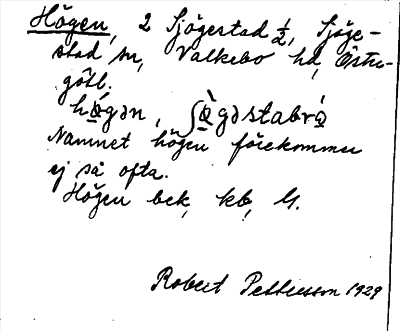 Högen, 2 Sjögestad ½, Sjöge-
stad sn, Valkebo hd, Öster-
götl.
hǿ̱gən, ʃø̱̀gəstabrǿ̱
Namnet högen förekommer
ej så ofta.
Högen bek, kb, G.
Robert Pettersson 1929